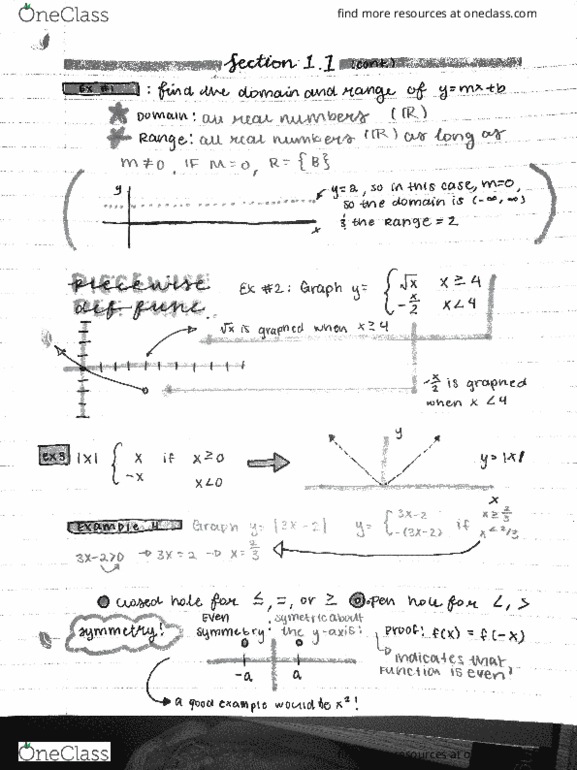 OneClass
find more resources at oneclass.com
Section 1.1 (cont.)
Ex #1: find the domain and range of y=mx+b
Domain: all real numbers (ℝ)
Range: all real numbers (ℝ) as long as
m≠0. IF M=0, R={B}
y
y=2, so in this case, m=0,
so the domain is (-∞, ∞)
& the Range = 2
x
PIECEWISE
def func.
Ex #2: Graph y= { √x x ≥ 4
-x/2 x < 4
√x is graphed when x ≥ 4
-x/2 is graphed
when x < 4
ex 3 |x| { x if x ≥ 0
-x x < 0
y
y=|x|
x
Example 4 Graph y=|3x-2| y= { 3x-2 if x ≥ 2/3
-(3x-2) x < 2/3
3x-2>0 → 3x=2 → x=2/3
closed hole for ≤, =, or ≥ open hole for <, >
symmetry!
Even symmetry: symetric about the y-axis:
-a a
Proof: f(x) = f(-x)
indicates that
function is even!
a good example would be x²!
OneClass